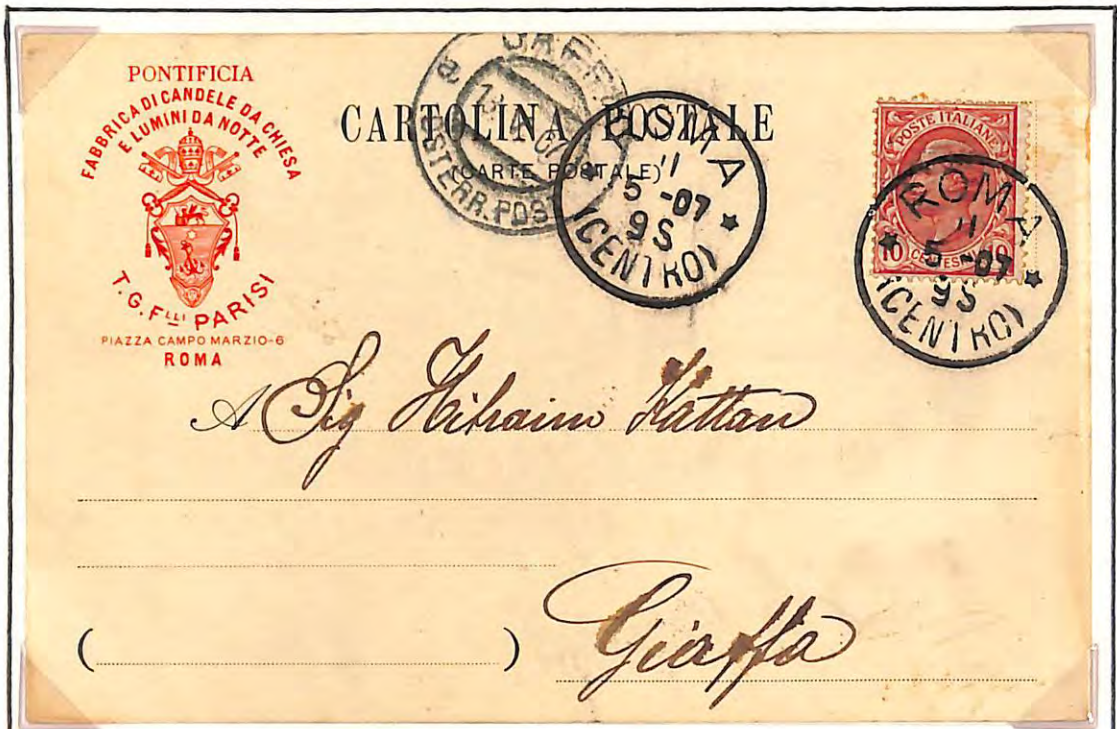 PONTIFICIA
FABBRICA DI CANDELE DA CHIESA
E LUMINI DA NOTTE
T. G. FLLI PARISI
PIAZZA CAMPO MARZIO-6
ROMA
CARTOLINA POSTALE
(CARTE POSTALE)
ÖSTERR. POST
a
ROMA
11
5 -07
9S
(CENTRO)
POSTE ITALIANE
10 CENTESIMI 10
ROMA
11
5 -07
9S
(CENTRO)
A Sig Hibraim Kattan
( )
Giaffa